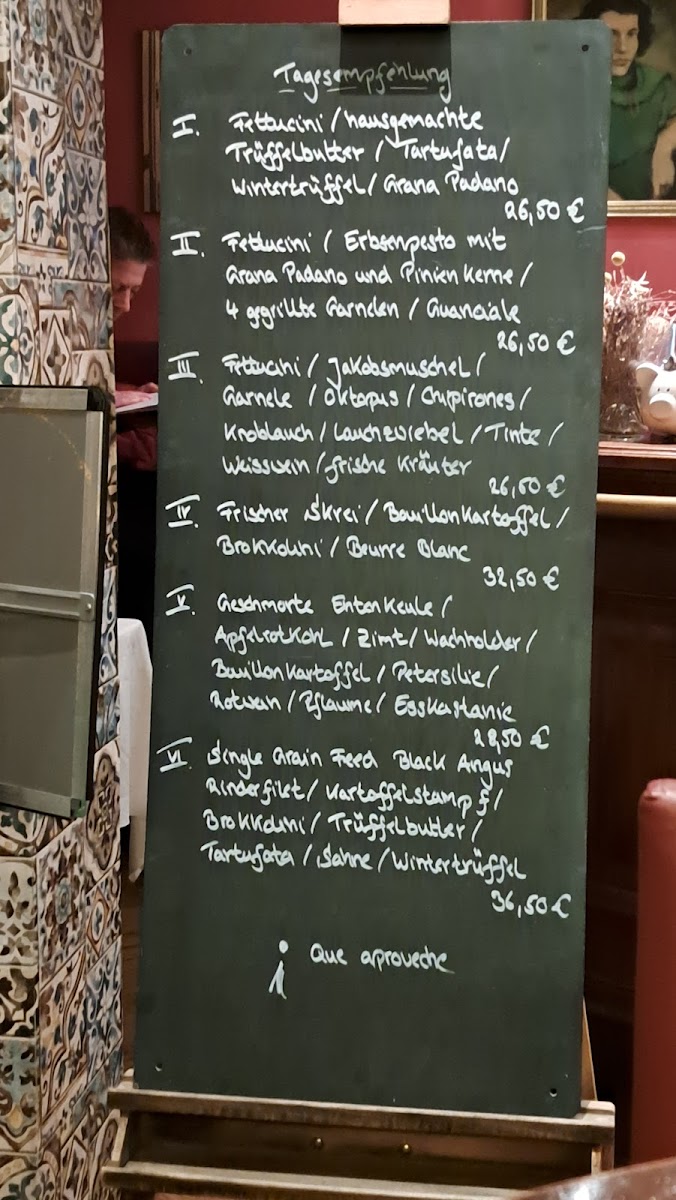 Tagesempfehlung
I. Fettucini / hausgemachte
Trüffelbutter / Tartufata /
Wintertrüffel / Grana Padano
26,50 €
II. Fettucini / Erbsenpesto mit
Grana Padano und Pinienkerne /
4 gegrillte Garnelen / Guanciale
26,50 €
III. Fettucini / Jakobsmuschel /
Garnele / Oktopus / Chipirones /
Knoblauch / Lauchzwiebel / Tinte /
Weisswein / frische Kräuter
26,50 €
IV. Frischer Skrei / Bouillonkartoffel /
Brokkolini / Beurre Blanc
32,50 €
V. Geschmorte Entenkeule /
Apfelrotkohl / Zimt / Wacholder /
Bouillonkartoffel / Petersilie /
Rotwein / Pflaume / Esskastanie
28,50 €
VI. Single Grain Feed Black Angus
Rinderfilet / Kartoffelstampf /
Brokkolini / Trüffelbutter /
Tartufata / Sahne / Wintertrüffel
36,50 €
¡ Que aproveche